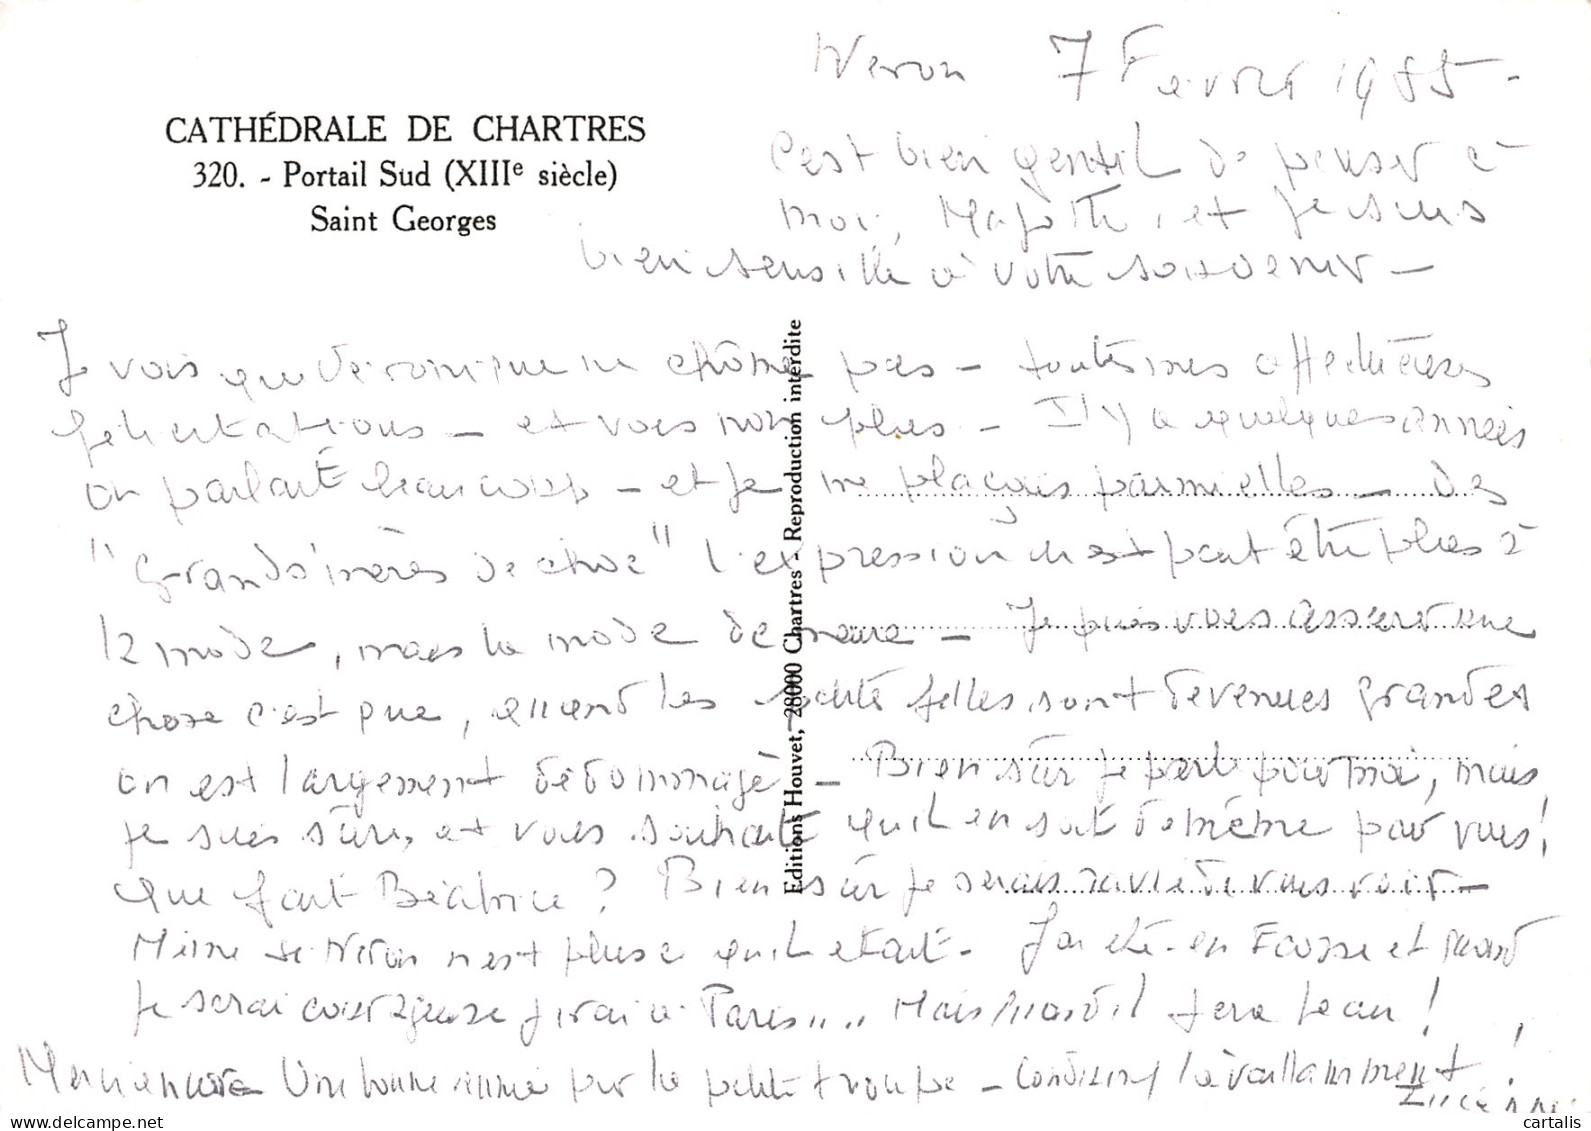 CATHÉDRALE DE CHARTRES
320. - Portail Sud (XIIIe siècle)
Saint Georges
Veron 7 Fevrier 1985 -
C'est bien gentil de penser à
moi, et je suis
bien sensible à votre souvenir -
Je vois que Véronique ne chôme pas - toutes mes affectueuses
félicitations - et vous non plus - Il y a quelques années
on parlait beaucoup - et je me plaçais parmi elles - des
"Grands'mères de choc" l'expression n'est peut être plus à
la mode, mais la mode demeure - Je puis vous assurer une
chose c'est que, quand les petites filles sont devenues grandes
on est largement dédommagé - Bien sûr je parle pour moi, mais
je suis sûre, et vous souhaite qu'il en soit de même pour vous !
Que fait Béatrice ? Bien sûr je serais ravie de vous voir -
Même si Véron n'est plus ce qu'il était. J'ai été en Ecosse et quand
je serai courageuse j'irai à Paris.... Mais quand il fera beau !
Bonne année pour la petite troupe - vaillamment !
Editions Houvet, 28000 Chartres - Reproduction interdite
cartalis
delcampe.net